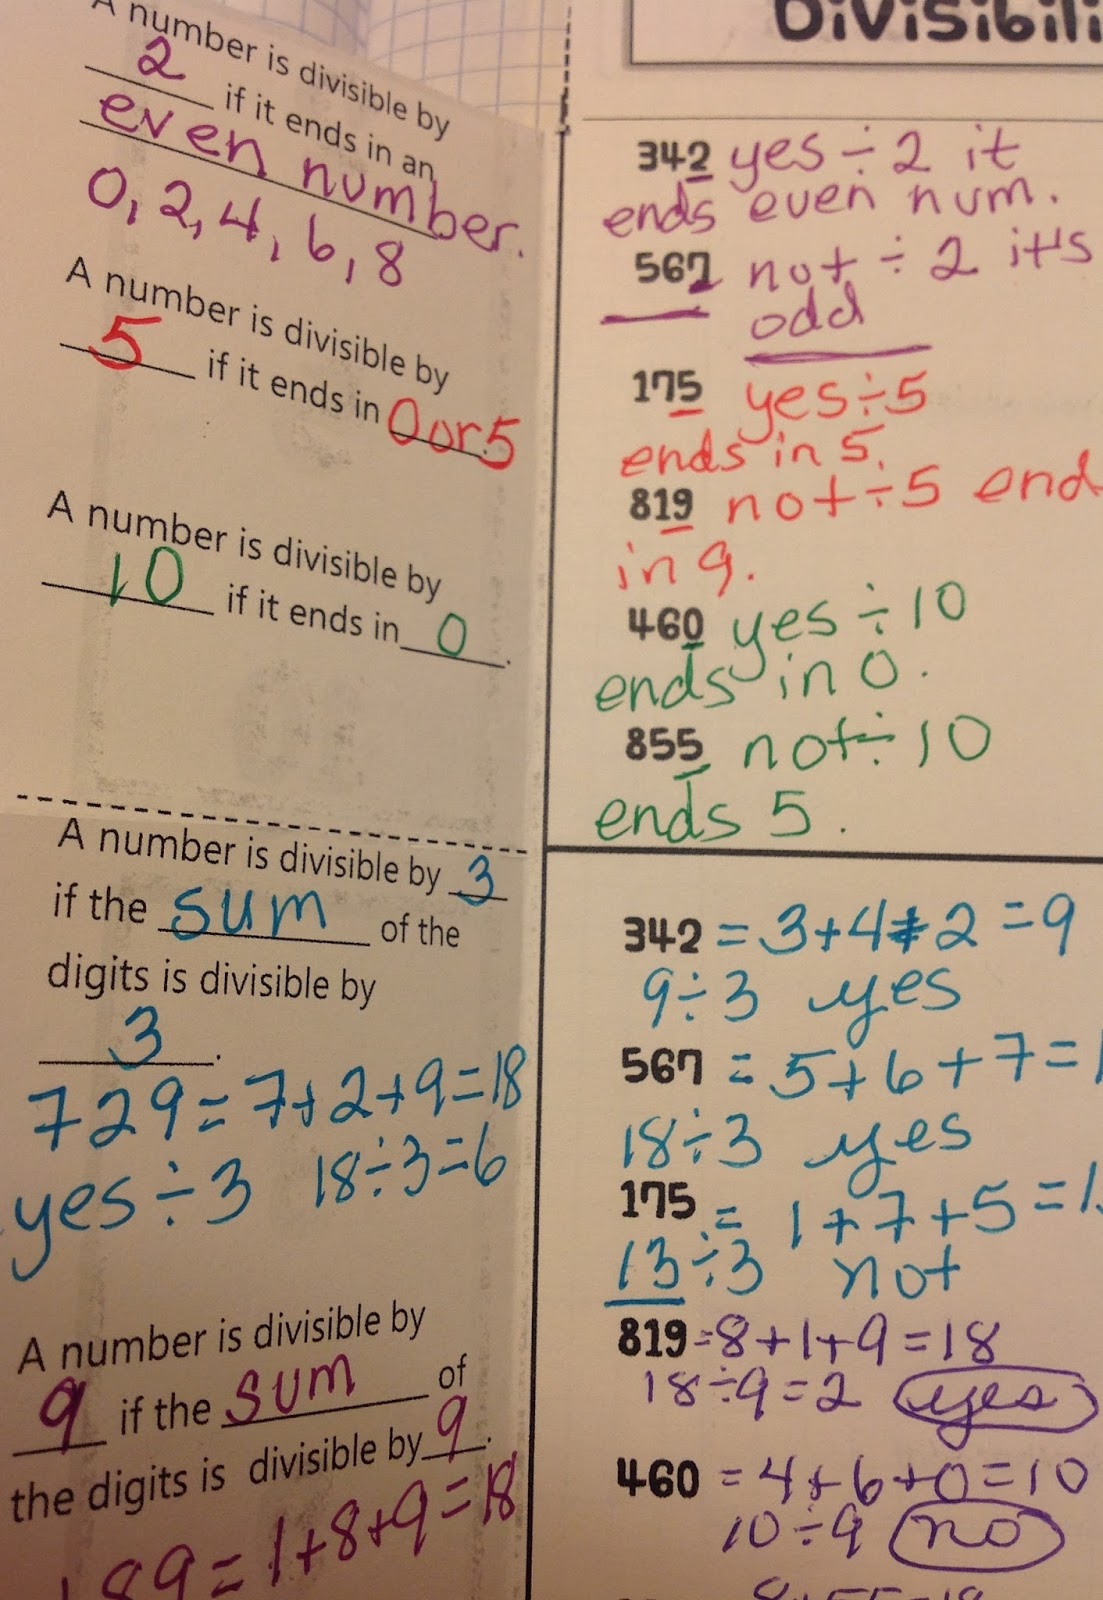 A number is divisible by
2 if it ends in an
even number.
0, 2, 4, 6, 8
A number is divisible by
5 if it ends in 0 or 5
A number is divisible by
10 if it ends in 0.
A number is divisible by 3
if the sum of the
digits is divisible by
3.
729 = 7+2+9=18
yes ÷ 3 18÷3=6
A number is divisible by
9 if the sum of
the digits is divisible by 9.
189 = 1+8+9=18
Divisibili
342 yes ÷ 2 it
ends even num.
567 not ÷ 2 it's
odd
175 yes ÷ 5
ends in 5.
819 not ÷ 5 end
in 9.
460 yes ÷ 10
ends in 0.
855 not ÷ 10
ends 5.
342 = 3+4+2 = 9
9÷3 yes
567 = 5+6+7=1
18÷3 yes
175 = 1+7+5=1
13÷3 not
819 = 8+1+9=18
18÷9=2 yes
460 = 4+6+0=10
10÷9 no